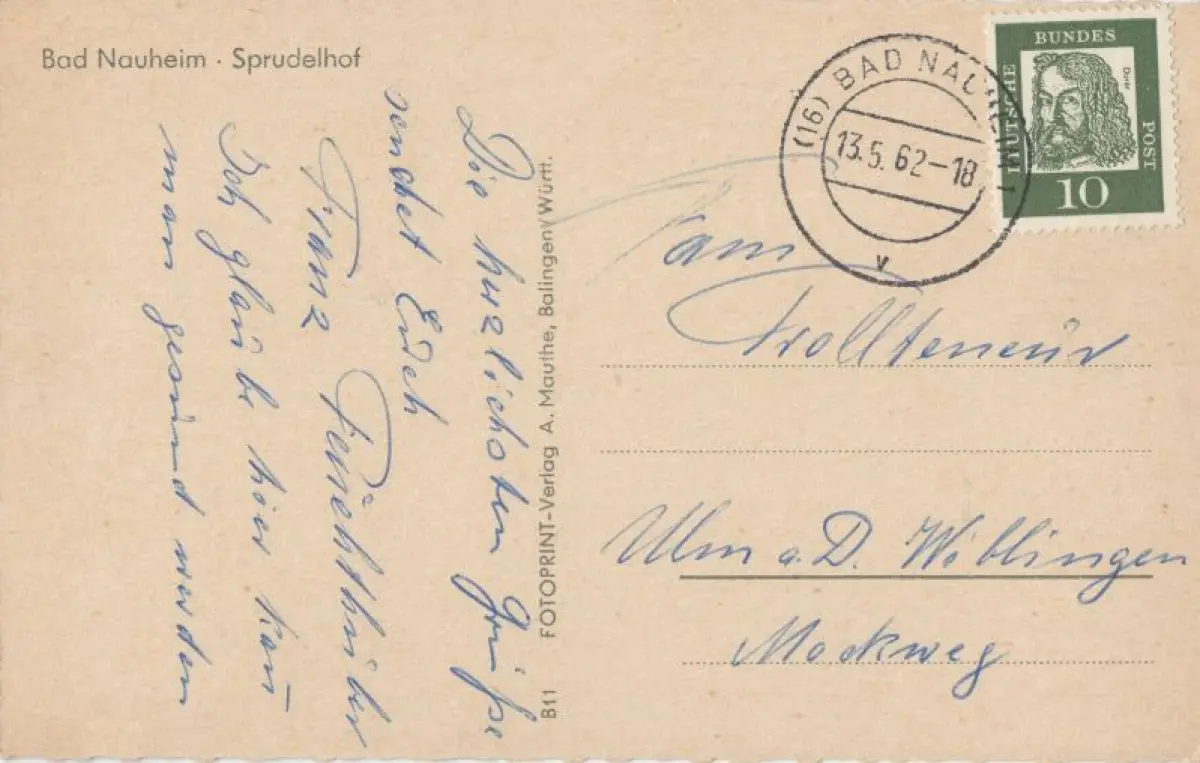 Bad Nauheim · Sprudelhof
Die herzlichsten Grüße
sendet Euch
Franz
Ich glaube hier kan̄
man gesund werden
B11 FOTOPRINT-Verlag A. Mauthe, Balingen/Württ.
(16) BAD NAUHEIM 1
13.5.62-18
v
DEUTSCHE
BUNDES
POST
Dürer
10
Fam
Ulm a. D. Wiblingen
Mockweg